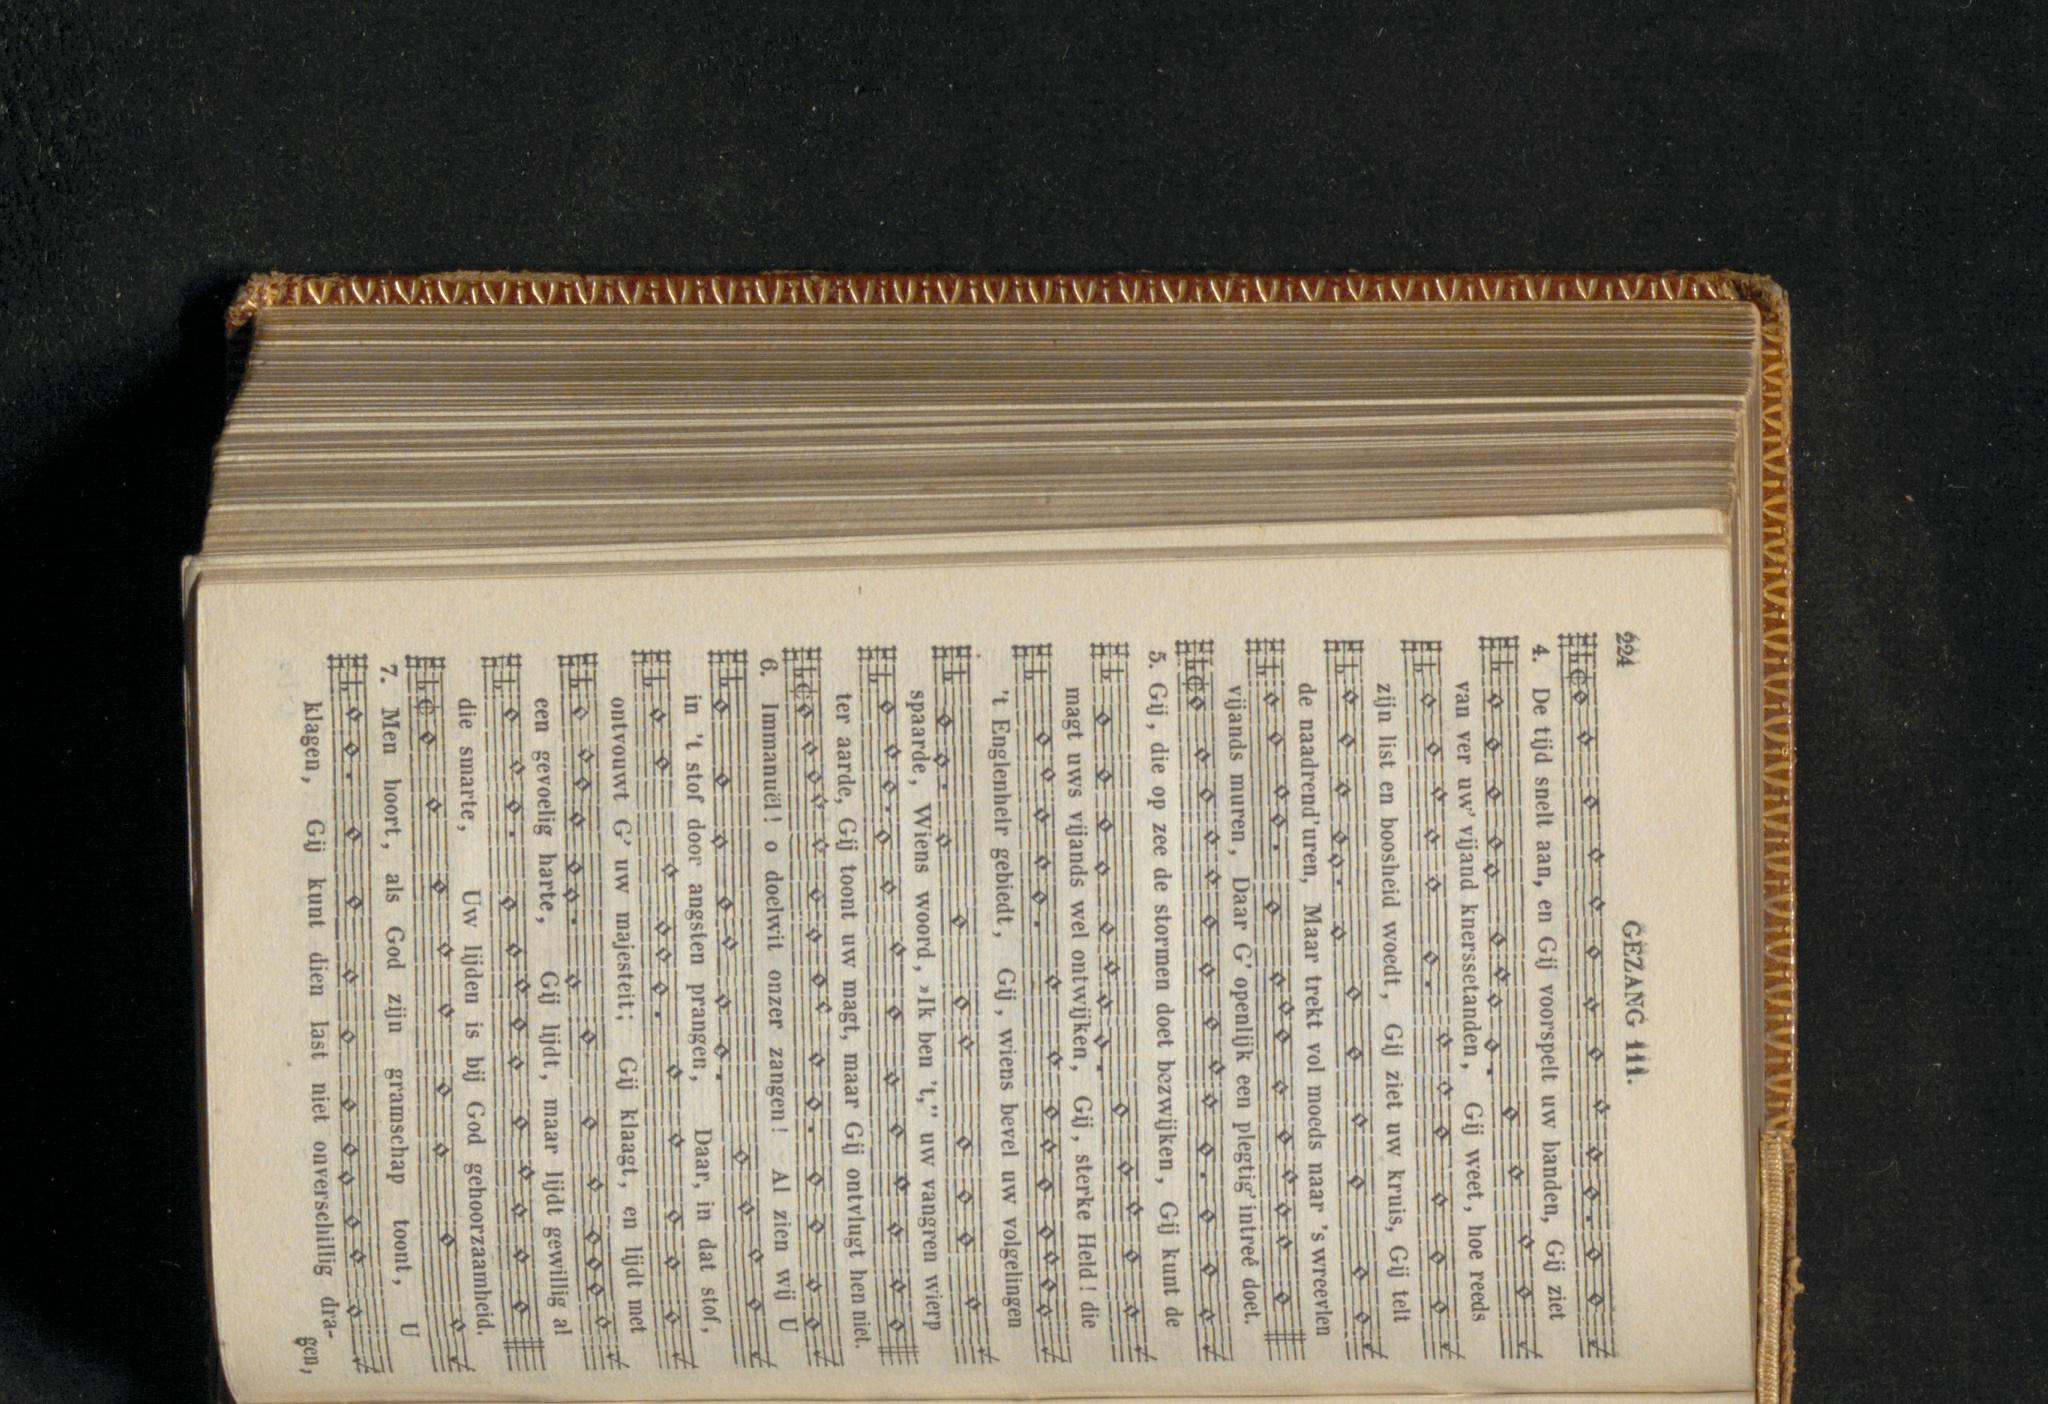 224
GEZANG 111.
4. De tijd snelt aan, en Gij voorspelt uw banden, Gij ziet
van ver uw' vijand knerssetanden, Gij weet, hoe reeds
zijn list en boosheid woedt, Gij ziet uw kruis, Gij telt
de naadrend' uren, Maar trekt vol moeds naar 's wreevlen
vijands muren, Daar G' openlijk een plegtig' intreê doet.
5. Gij, die op zee de stormen doet bezwijken, Gij kunt de
magt uws vijands wel ontwijken, Gij, sterke Held! die
't Englenheir gebiedt, Gij, wiens bevel uw volgelingen
spaarde, Wiens woord, »Ik ben 't," uw vangren wierp
ter aarde, Gij toont uw magt, maar Gij ontvlugt hen niet.
6. Immanuël! o doelwit onzer zangen! Al zien wij U
in 't stof door angsten prangen, Daar, in dat stof,
ontvouwt G' uw majesteit; Gij klaagt, en lijdt met
een gevoelig harte, Gij lijdt, maar lijdt gewillig al
die smarte, Uw lijden is bij God gehoorzaamheid.
7. Men hoort, als God zijn gramschap toont, U
klagen, Gij kunt dien last niet onverschillig dra-
gen,